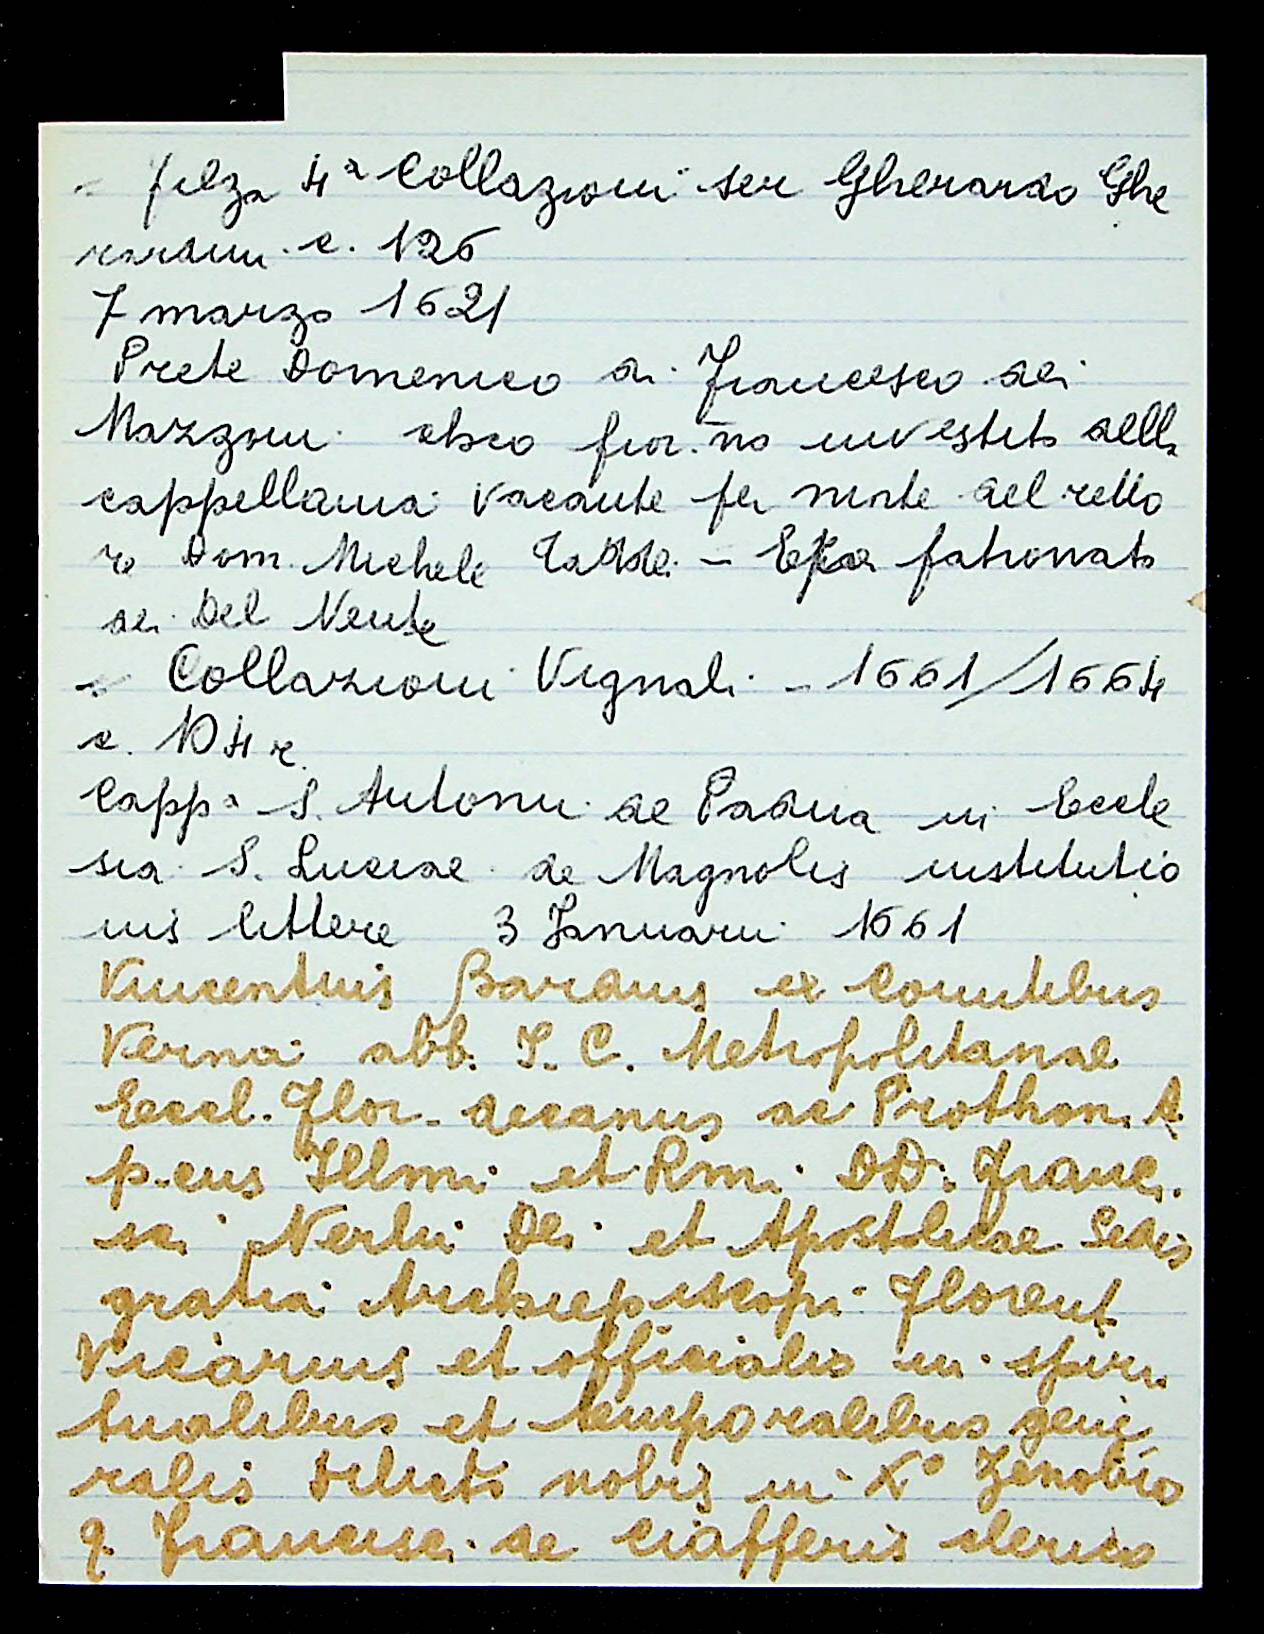 - filza 4ª Collazioni ser Gherardo Ghe
rardini c. 126
7 marzo 1621
Prete Domenico di Francesco dei
Mazzoni chco fior.no investito della
cappellania vacante per morte del retto
re Dom. Michele - patronato
dei Del Nente
- Collazioni Vignali - 1661/1664
c. 104 r.
Capp.ª S. Antonii de Padua in Eccle
sia S. Luciae de Magnolis institutio
nis littere 3 Januarii 1661
Vincentius Bardius ex Comitibus
Vernii abb. J. C. Metropolitanae
Eccl. Flor. decanus ac Prothon. A
p.cus Illmi et Rmi DD. Franci
sci Nerlii Dei et Apostolicae Sedis
gratia Archiepiscopi Florent
Vicarius et officialis in spiri
tualibus et temporalibus gene
ralis Dilecto nobis in Xº Zenobio
q. Francisci de Ciafferis clerico